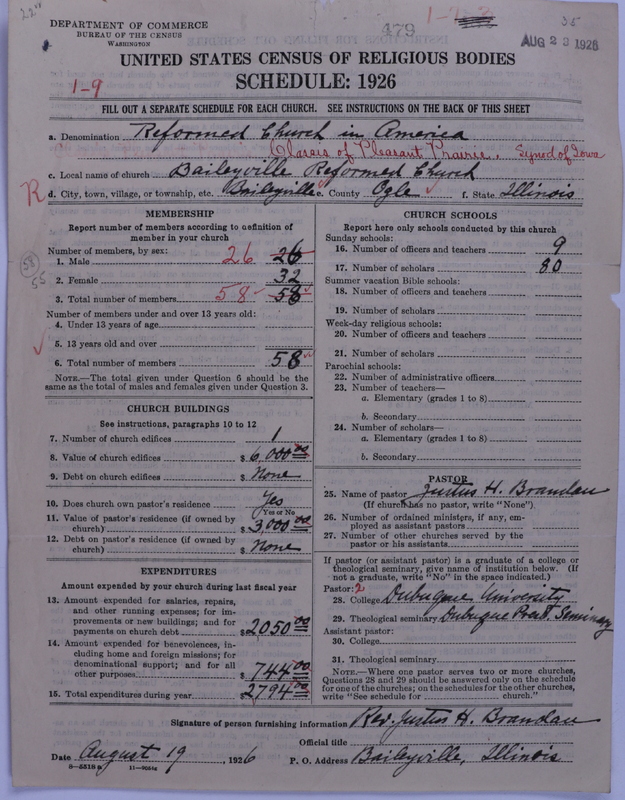 DEPARTMENT OF COMMERCE
BUREAU OF THE CENSUS
WASHINGTON
479
AUG 23 1926
UNITED STATES CENSUS OF RELIGIOUS BODIES
SCHEDULE: 1926
1-9
FILL OUT A SEPARATE SCHEDULE FOR EACH CHURCH. SEE INSTRUCTIONS ON THE BACK OF THIS SHEET
a. Denomination Reformed Church in America
Classis of Pleasant Prairie, Synod of Iowa
c. Local name of church Baileyville Reformed Church
R d. City, town, village, or township, etc. Baileyville e. County Ogle f. State Illinois
MEMBERSHIP
Report number of members according to definition of
member in your church
Number of members, by sex:
1. Male 26 26
2. Female 32
3. Total number of members 58 58
Number of members under and over 13 years old:
4. Under 13 years of age
5. 13 years old and over
6. Total number of members 58
NOTE.—The total given under Question 6 should be the
same as the total of males and females given under Question 3.
CHURCH BUILDINGS
See instructions, paragraphs 10 to 12
7. Number of church edifices 1
8. Value of church edifices $ 6,000 00
9. Debt on church edifices $ None
10. Does church own pastor's residence Yes
Yes or No
11. Value of pastor's residence (if owned by
church) $ 3,000 00
12. Debt on pastor's residence (if owned by
church) $ None
EXPENDITURES
Amount expended by your church during last fiscal year
13. Amount expended for salaries, repairs,
and other running expenses; for im-
provements or new buildings; and for
payments on church debt $ 2050 00
14. Amount expended for benevolences, in-
cluding home and foreign missions; for
denominational support; and for all
other purposes $ 744 00
15. Total expenditures during year $ 2794 00
CHURCH SCHOOLS
Report here only schools conducted by this church
Sunday schools:
16. Number of officers and teachers 9
17. Number of scholars 80
Summer vacation Bible schools:
18. Number of officers and teachers
19. Number of scholars
Week-day religious schools:
20. Number of officers and teachers
21. Number of scholars
Parochial schools:
22. Number of administrative officers
23. Number of teachers—
a. Elementary (grades 1 to 8)
b. Secondary
24. Number of scholars—
a. Elementary (grades 1 to 8)
b. Secondary
PASTOR
25. Name of pastor Justus H. Brandau
(If church has no pastor, write "None")
26. Number of ordained ministers, if any, em-
ployed as assistant pastors
27. Number of other churches served by the
pastor or his assistants
If pastor (or assistant pastor) is a graduate of a college or
theological seminary, give name of institution below. (If
not a graduate, write "No" in the space indicated.)
Pastor: 2
28. College Dubuque University
29. Theological seminary Dubuque Presb. Seminary
Assistant pastor:
30. College
31. Theological seminary
NOTE.—Where one pastor serves two or more churches,
Questions 28 and 29 should be answered only on the schedule
for one of the churches; on the schedules for the other churches,
write "See schedule for church."
Signature of person furnishing information Rev. Justus H. Brandau
Official title
Date August 19, 1926 P. O. Address Baileyville, Illinois